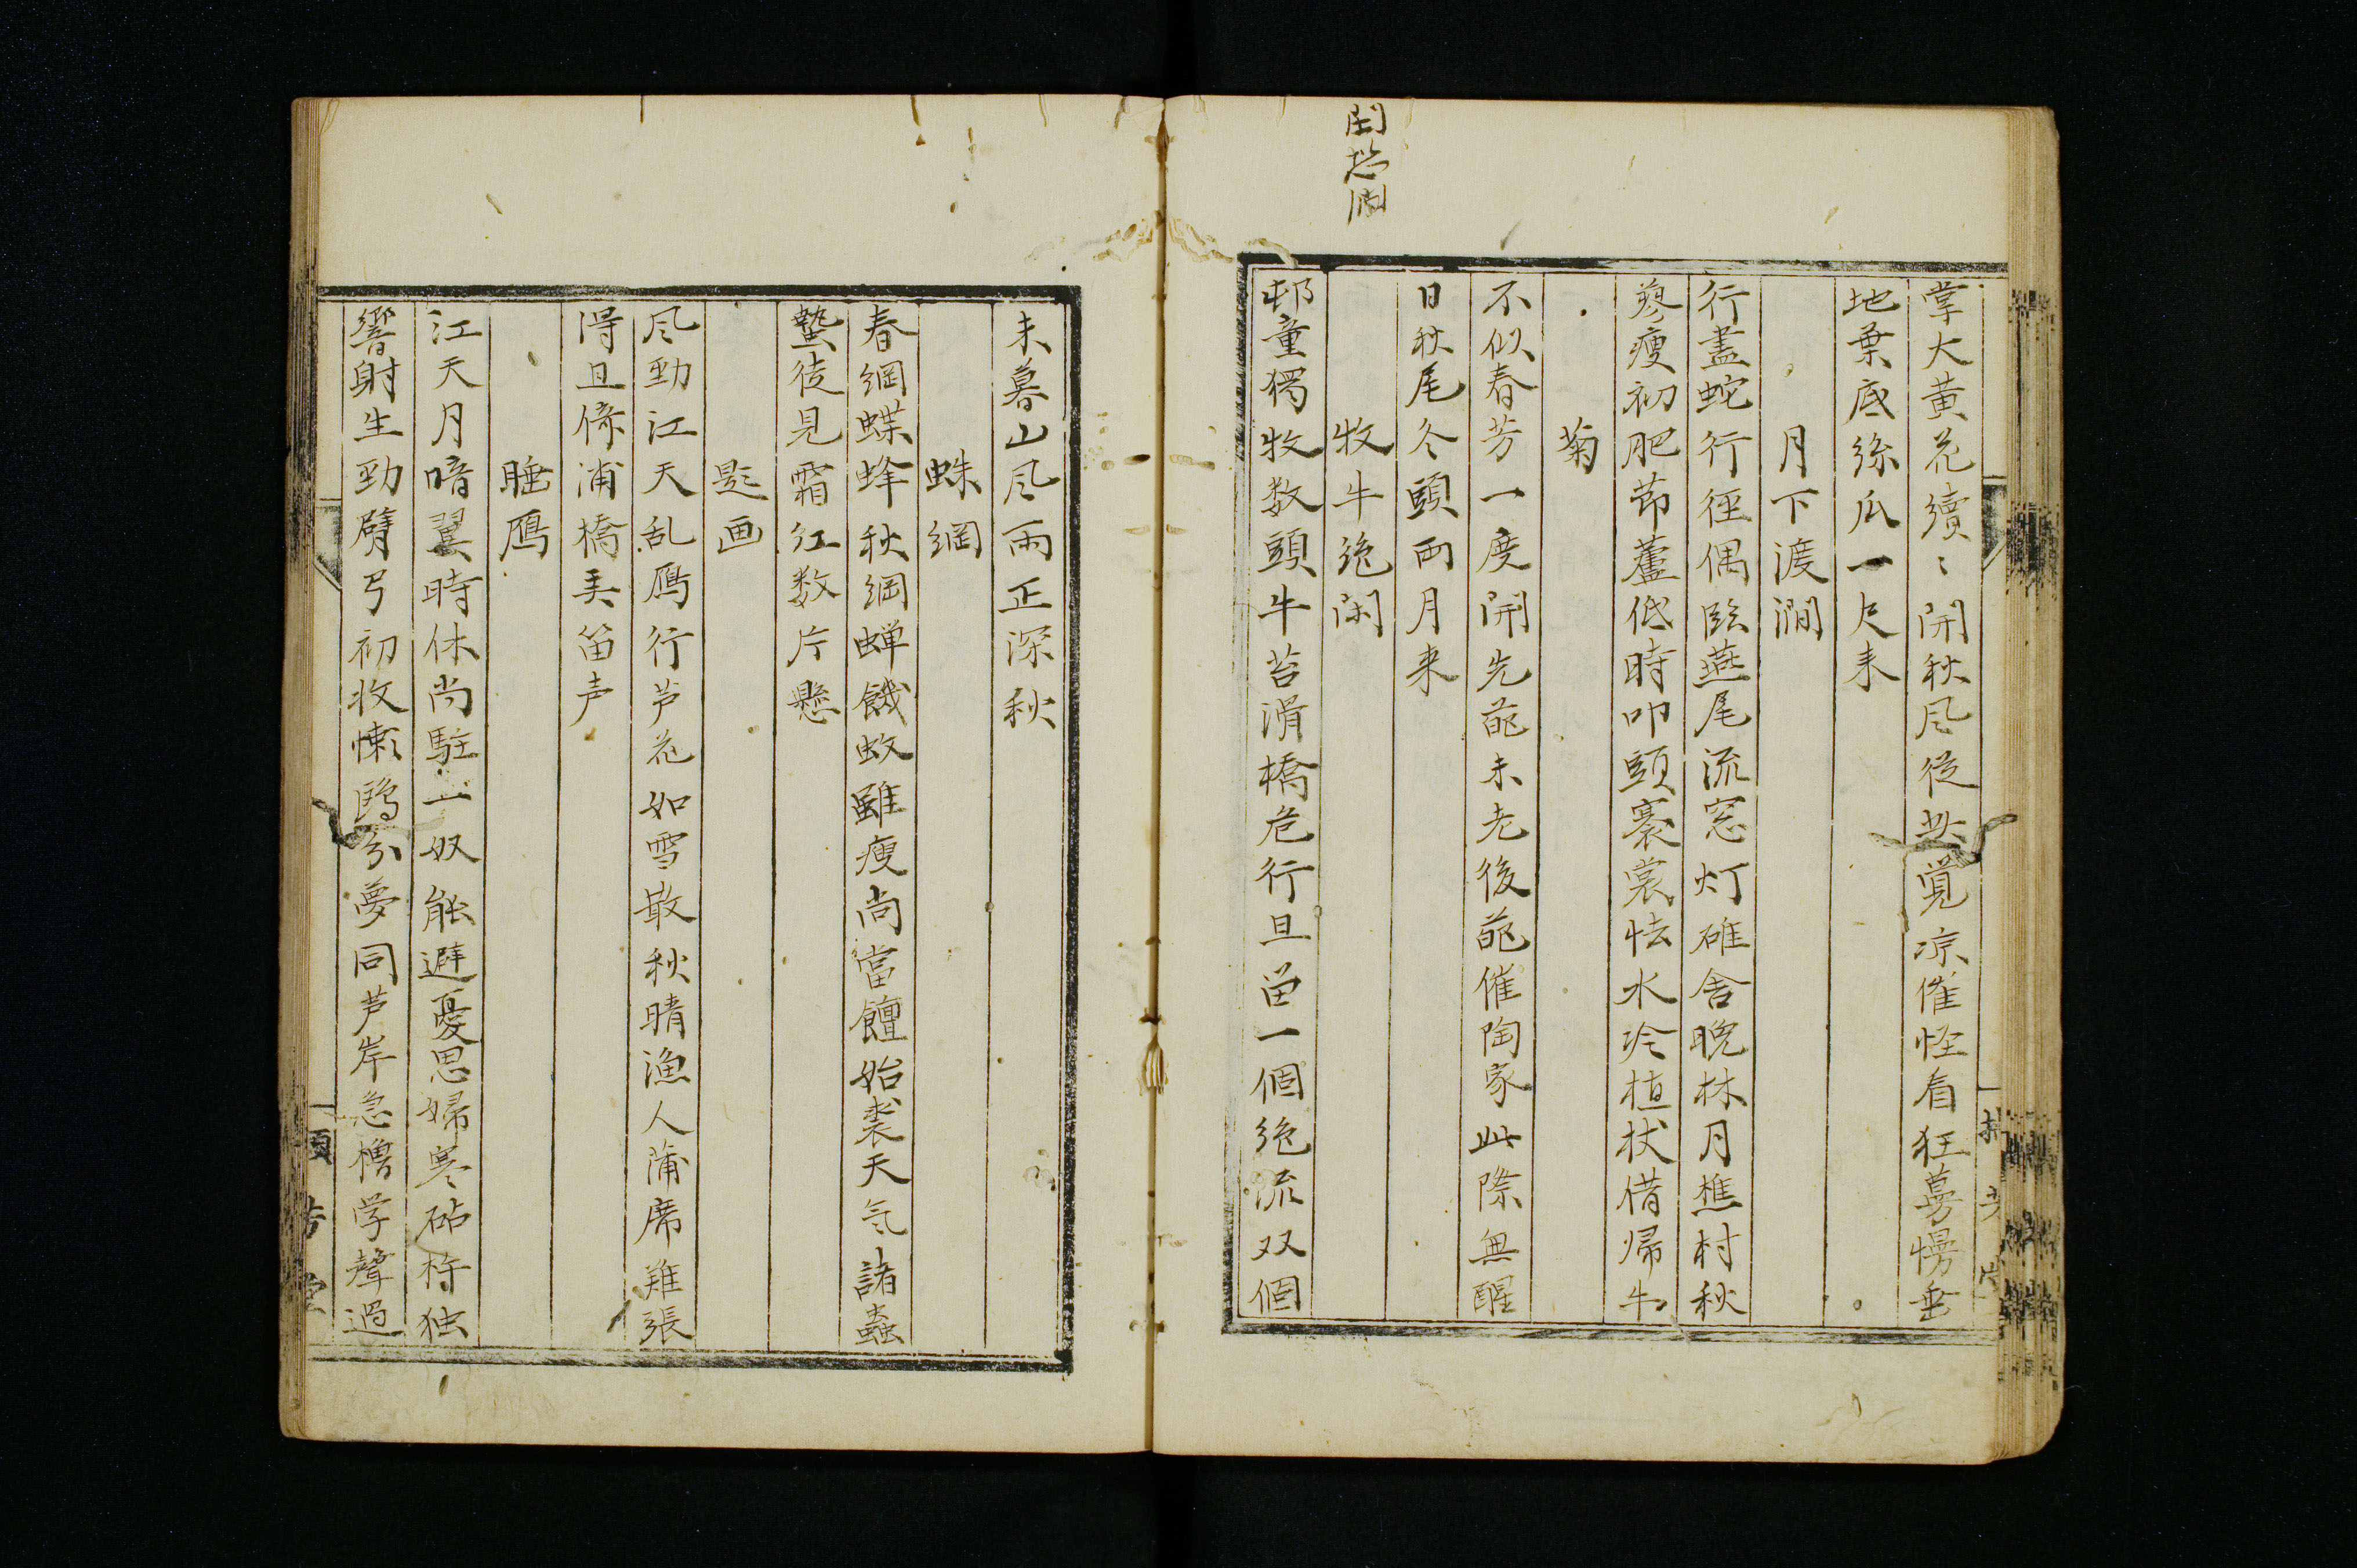 掌大黄花續々開秋风從此覚凉催怪看狂蔓愕垂
地葉底絲瓜一尺未
月下渡澗
行盡蛇行径偶臨燕尾流窓灯碓舎晩林月樵村秋
蓼瘦初肥節蘆低時叩頭褰裳怯水冷植杖借帰牛
菊
不似春芳一度開先葩未老後葩催陶家此際無醒
日秋尾冬頭両月来
閑恐澗
牧牛絶闲
邨童獨牧数頭牛苔滑橋危行且留一個絶流双個
未暮山风雨正深秋
蛛網
春網蝶蜂秋網蝉饑蚊雖瘦尚當饘始裘天气諸蟲
蟄徒見霜红数片懸
题画
风勁江天乱鴈行芦花如雪散秋晴漁人蒲席難張
得且倚浦橋美笛声
睡鴈
江天月暗翼時休尚駐一奴能避憂思婦寒砧杵独
響射生勁臂弓初收懶鷗分夢同芦岸急櫓学聲過